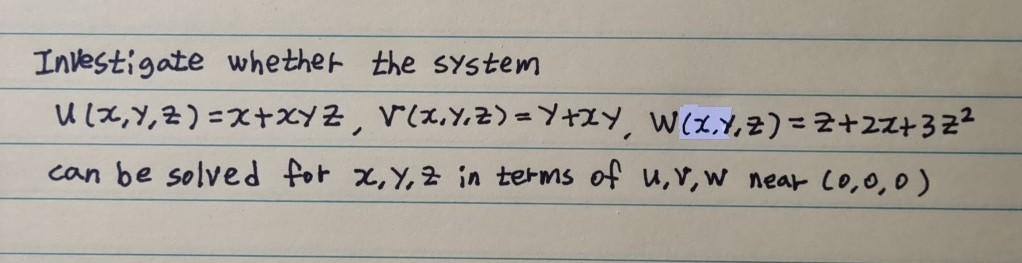 Investigate whether the system
u(x,y,z)=x+xyz, v(x,y,z)=y+xy, w(x,y,z)=z+2z+3z²
can be solved for x,y,z in terms of u,v,w near (0,0,0)